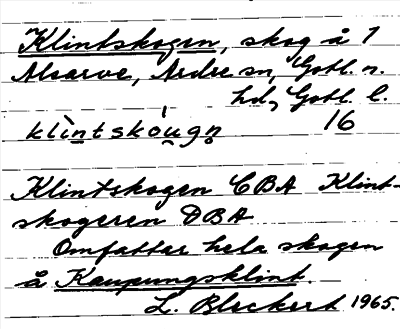 Klintskogen, skog å 1
Alsarve, Ardre sn, Gotl. n.
hd, Gotl. l.
klìntskóu̯gn̥ 16
Klintskogen CBA Klint-
skogeren DBA
Omfattar hela skogen
å Kaupungsklint.
L. Bleckert 1965.